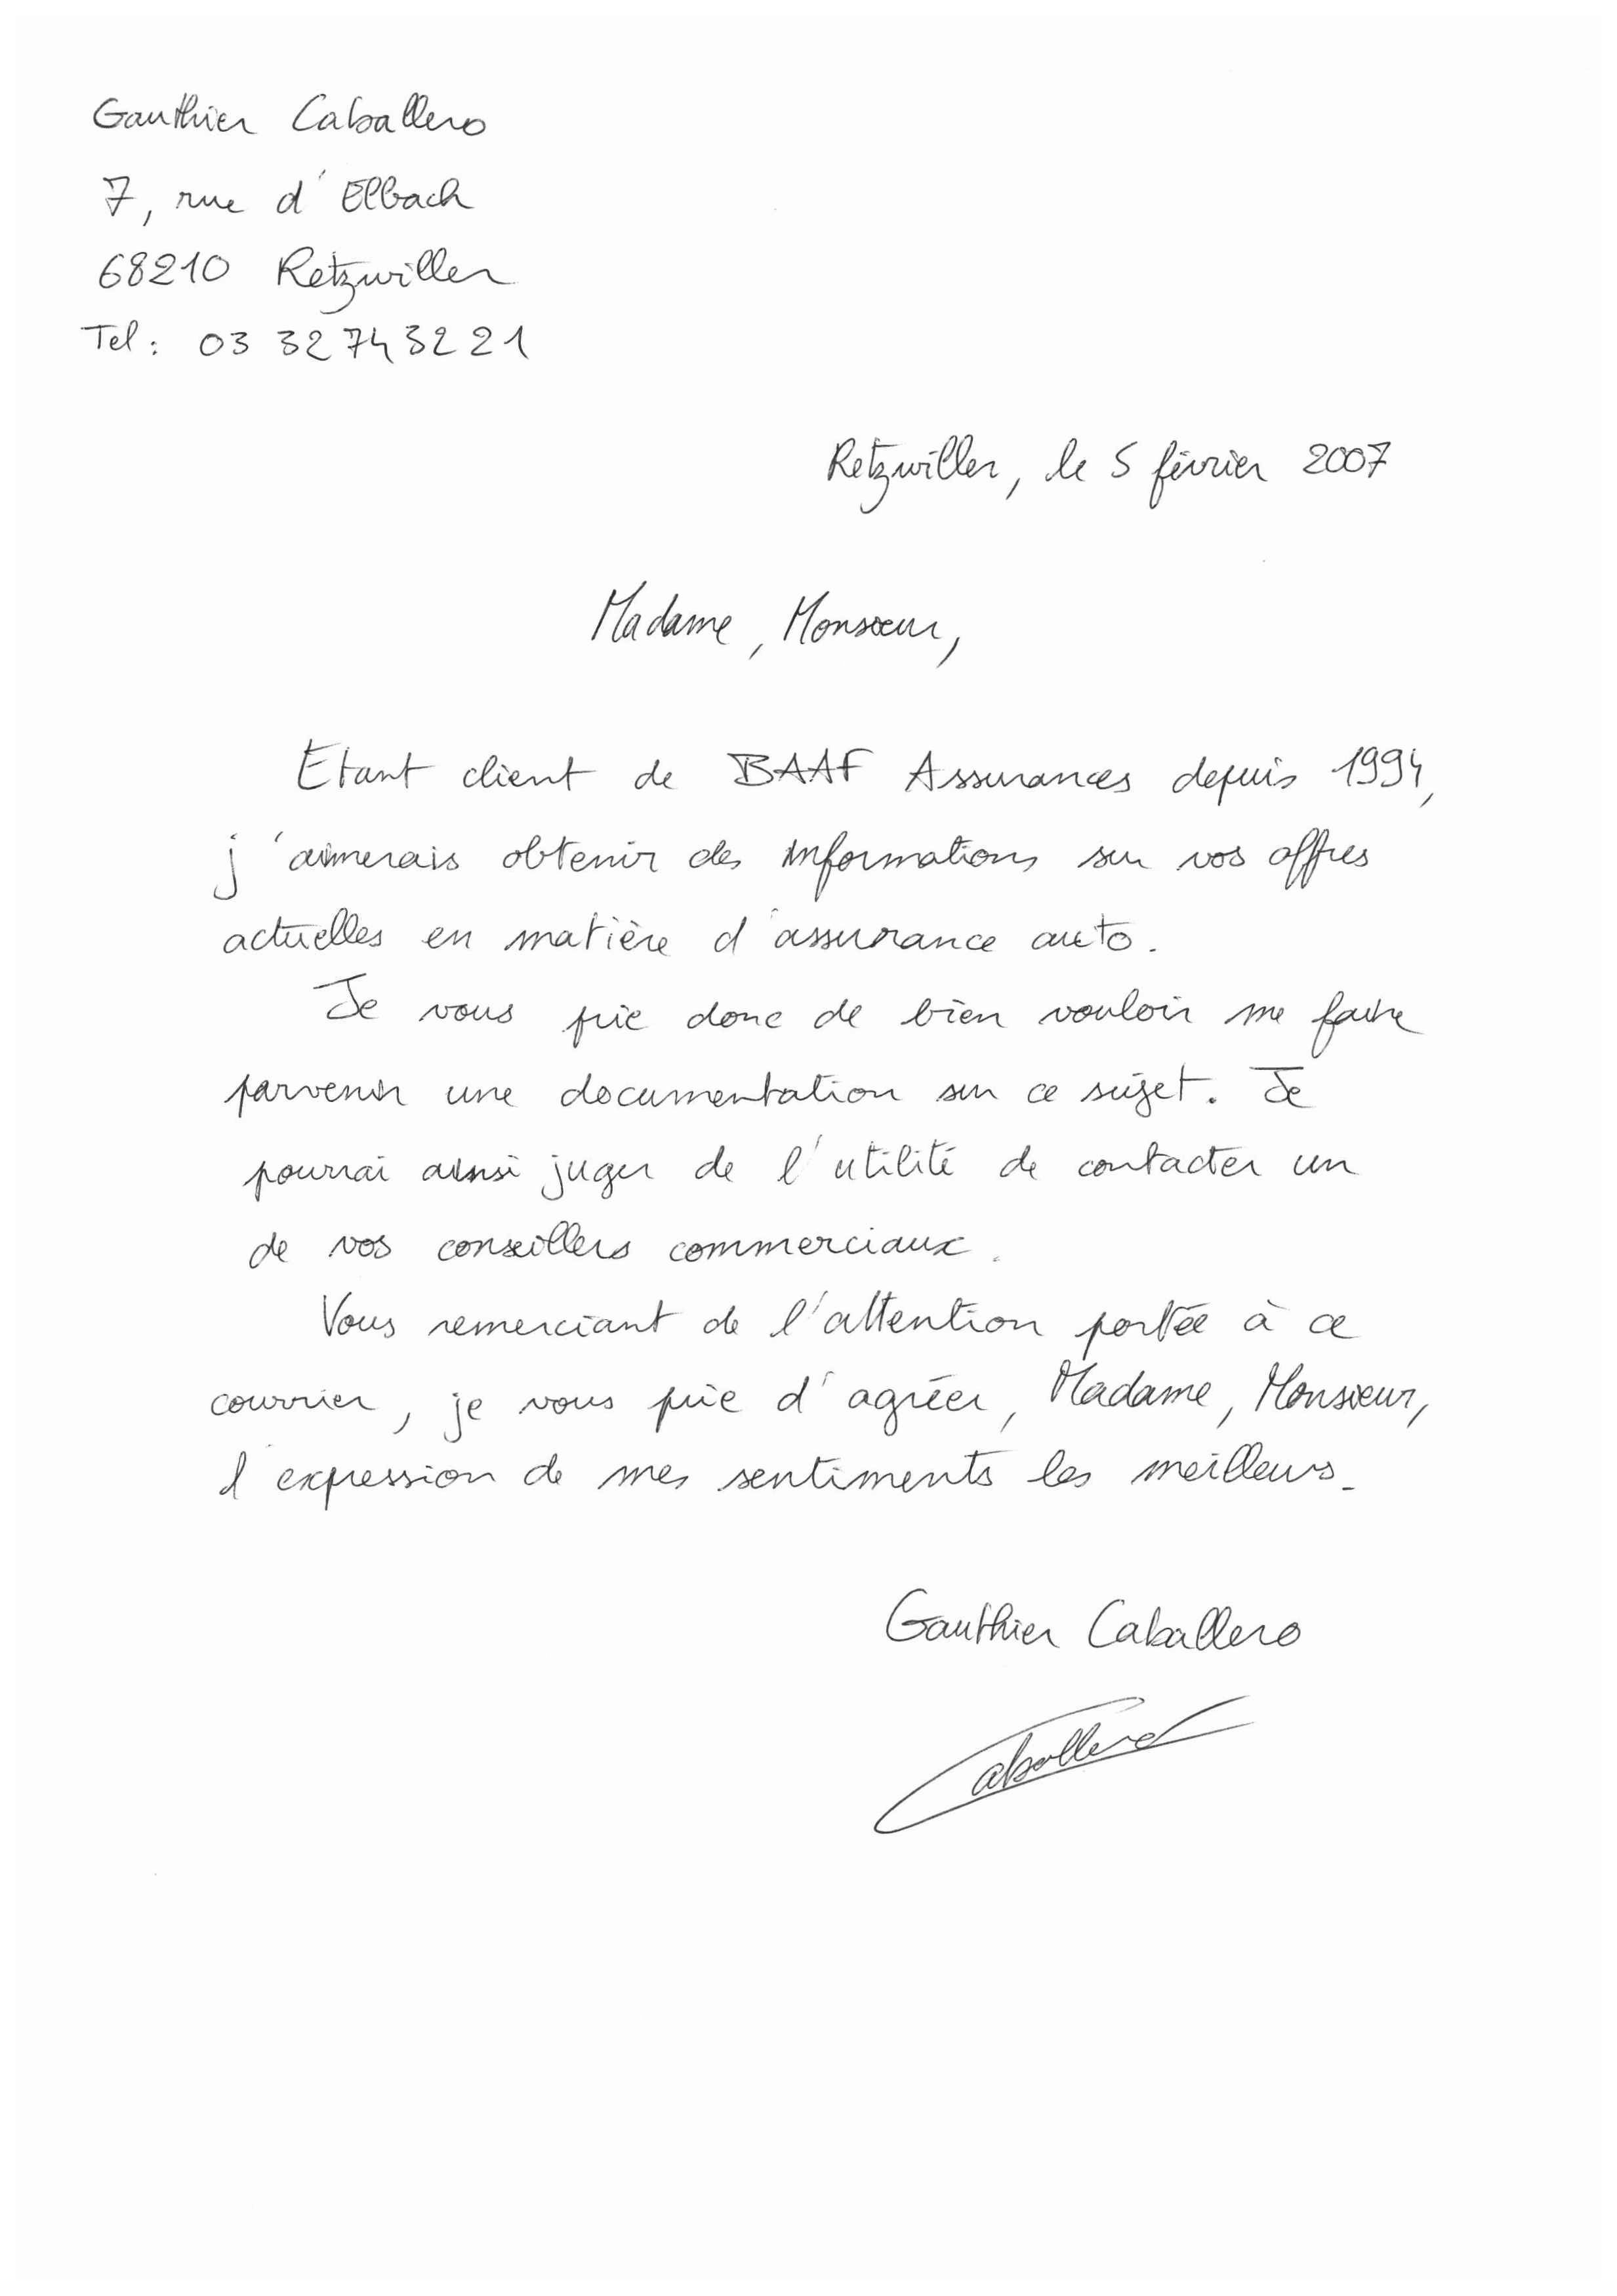 Gauthier Caballero
7, rue d'Elbach
68210 Retzwiller
Tel : 03 32 74 32 21
Retzwiller, le 5 février 2007
Madame, Monsieur,
Etant client de BAAF Assurances depuis 1994,
j'aimerais obtenir des informations sur vos offres
actuelles en matière d'assurance auto.
Je vous prie donc de bien vouloir me faire
parvenir une documentation sur ce sujet. Je
pourrai ainsi juger de l'utilité de contacter un
de vos conseillers commerciaux.
Vous remerciant de l'attention portée à ce
courrier, je vous prie d'agréer, Madame, Monsieur,
l'expression de mes sentiments les meilleurs.
Gauthier Caballero
Caballero